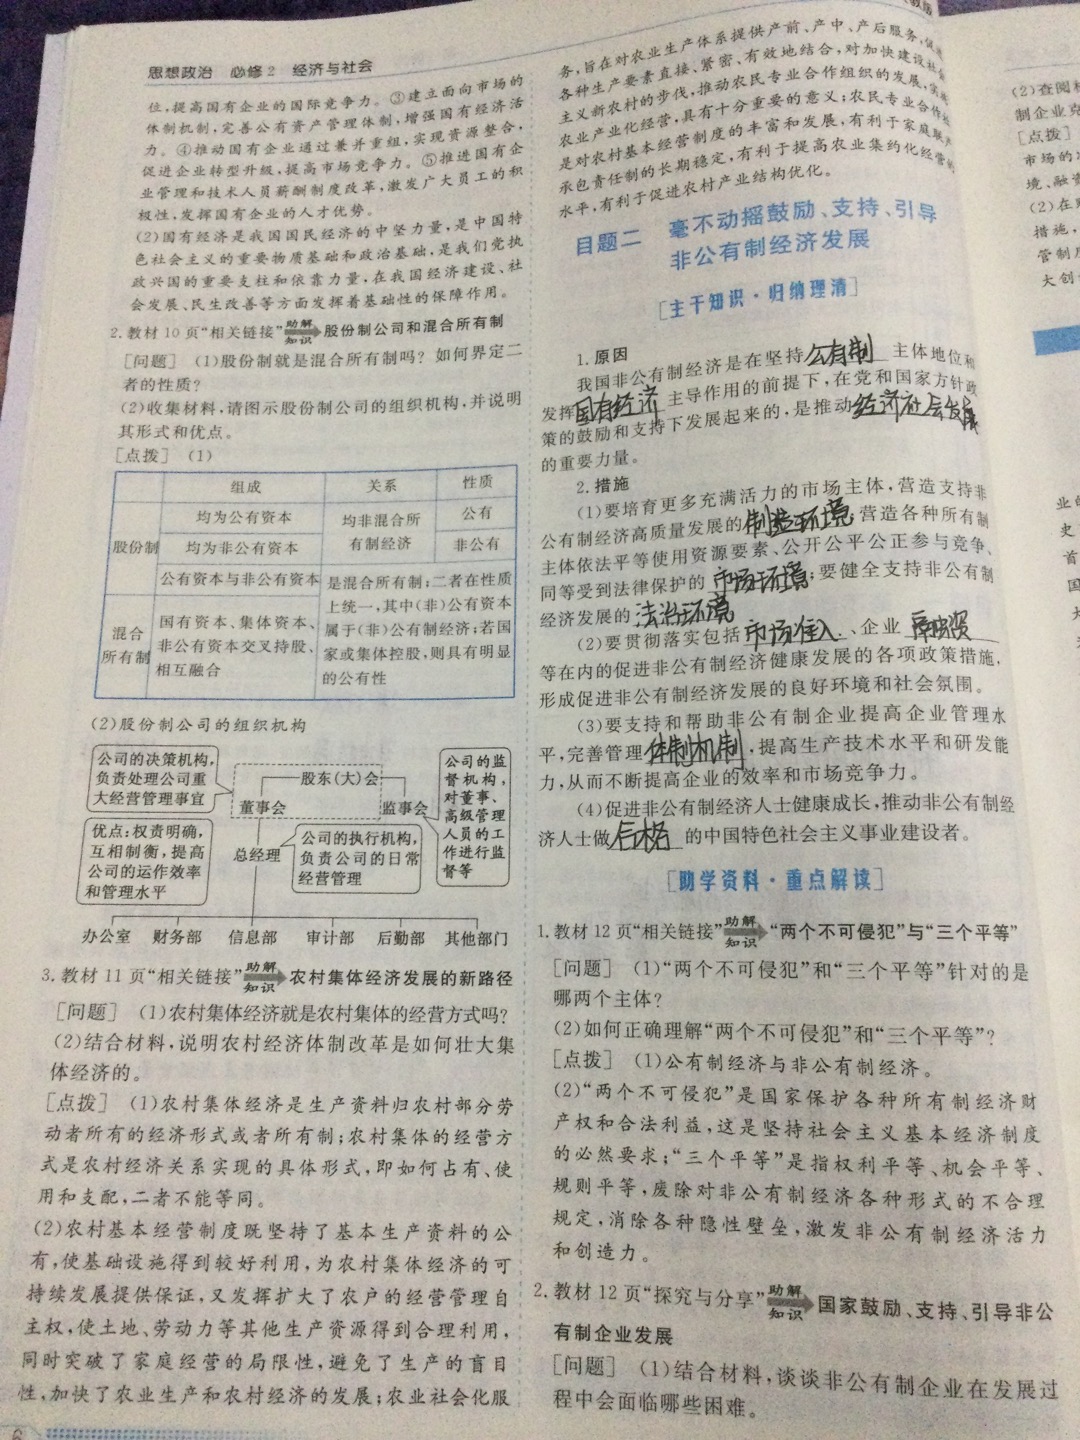 思想政治 必修2 经济与社会
位,提高国有企业的国际竞争力。③建立面向市场的
体制机制,完善公有资产管理体制,增强国有经济活
力。④推动国有企业通过兼并重组,实现资源整合,
促进企业转型升级,提高市场竞争力。⑤推进国有企
业管理和技术人员薪酬制度改革,激发广大员工的积
极性,发挥国有企业的人才优势。
(2)国有经济是我国国民经济的中坚力量,是中国特
色社会主义的重要物质基础和政治基础,是我们党执
政兴国的重要支柱和依靠力量,在我国经济建设、社
会发展、民生改善等方面发挥着基础性的保障作用。
2.教材10页“相关链接”助解知识股份制公司和混合所有制
[问题] (1)股份制就是混合所有制吗?如何界定二
者的性质?
(2)收集材料,请图示股份制公司的组织机构,并说明
其形式和优点。
[点拨] (1)
组成 关系 性质
股份制 均为公有资本 均非混合所有制经济 公有
均为非公有资本 非公有
公有资本与非公有资本 是混合所有制;二者在性质
上统一,其中(非)公有资本
属于(非)公有制经济;若国
家或集体控股,则具有明显
的公有性
混合所有制 国有资本、集体资本、
非公有资本交叉持股、
相互融合
(2)股份制公司的组织机构
公司的决策机构,
负责处理公司重
大经营管理事宜
股东(大)会
董事会
监事会
公司的监
督机构,
对董事、
高级管理
人员的工
作进行监
督等
优点:权责明确,
互相制衡,提高
公司的运作效率
和管理水平
总经理
公司的执行机构,
负责公司的日常
经营管理
办公室 财务部 信息部 审计部 后勤部 其他部门
3.教材11页“相关链接”助解知识农村集体经济发展的新路径
[问题] (1)农村集体经济就是农村集体的经营方式吗?
(2)结合材料,说明农村经济体制改革是如何壮大集
体经济的。
[点拨] (1)农村集体经济是生产资料归农村部分劳
动者所有的经济形式或者所有制;农村集体的经营方
式是农村经济关系实现的具体形式,即如何占有、使
用和支配,二者不能等同。
(2)农村基本经营制度既坚持了基本生产资料的公
有,使基础设施得到较好利用,为农村集体经济的可
持续发展提供保证,又发挥扩大了农户的经营管理自
主权,使土地、劳动力等其他生产资源得到合理利用,
同时突破了家庭经营的局限性,避免了生产的盲目
性,加快了农业生产和农村经济的发展;农业社会化服
6
务,旨在对农业生产体系提供产前、产中、产后服务,
各种生产要素直接、紧密、有效地结合,对加快建设社会
主义新农村的步伐,推动农民专业合作组织的发展,实施
农业产业化经营,具有十分重要的意义;农民专业合作社
是对农村基本经营制度的丰富和发展,有利于家庭联产
承包责任制的长期稳定,有利于提高农业集约化经营的
水平,有利于促进农村产业结构优化。
目题二 毫不动摇鼓励、支持、引导
非公有制经济发展
[主干知识·归纳理清]
1.原因
我国非公有制经济是在坚持公有制主体地位和
发挥国有经济主导作用的前提下,在党和国家方针政
策的鼓励和支持下发展起来的,是推动经济社会发展
的重要力量。
2.措施
(1)要培育更多充满活力的市场主体,营造支持非
公有制经济高质量发展的制造环境;营造各种所有制
主体依法平等使用资源要素、公开公平公正参与竞争、
同等受到法律保护的市场环境;要健全支持非公有制
经济发展的法治环境
(2)要贯彻落实包括市场准入、企业
等在内的促进非公有制经济健康发展的各项政策措施,
形成促进非公有制经济发展的良好环境和社会氛围。
(3)要支持和帮助非公有制企业提高企业管理水
平,完善管理体制机制,提高生产技术水平和研发能
力,从而不断提高企业的效率和市场竞争力。
(4)促进非公有制经济人士健康成长,推动非公有制经
济人士做合格的中国特色社会主义事业建设者。
[助学资料·重点解读]
1.教材12页“相关链接”助解知识“两个不可侵犯”与“三个平等”
[问题] (1)“两个不可侵犯”和“三个平等”针对的是
哪两个主体?
(2)如何正确理解“两个不可侵犯”和“三个平等”?
[点拨] (1)公有制经济与非公有制经济。
(2)“两个不可侵犯”是国家保护各种所有制经济财
产权和合法利益,这是坚持社会主义基本经济制度
的必然要求;“三个平等”是指权利平等、机会平等、
规则平等,废除对非公有制经济各种形式的不合理
规定,消除各种隐性壁垒,激发非公有制经济活力
和创造力。
2.教材12页“探究与分享”助解知识国家鼓励、支持、引导非公
有制企业发展
[问题] (1)结合材料,谈谈非公有制企业在发展过
程中会面临哪些困难。
(2)查阅
制企业克
[点拨]
市场的
境、融资
(2)在
措施,
管制
大创